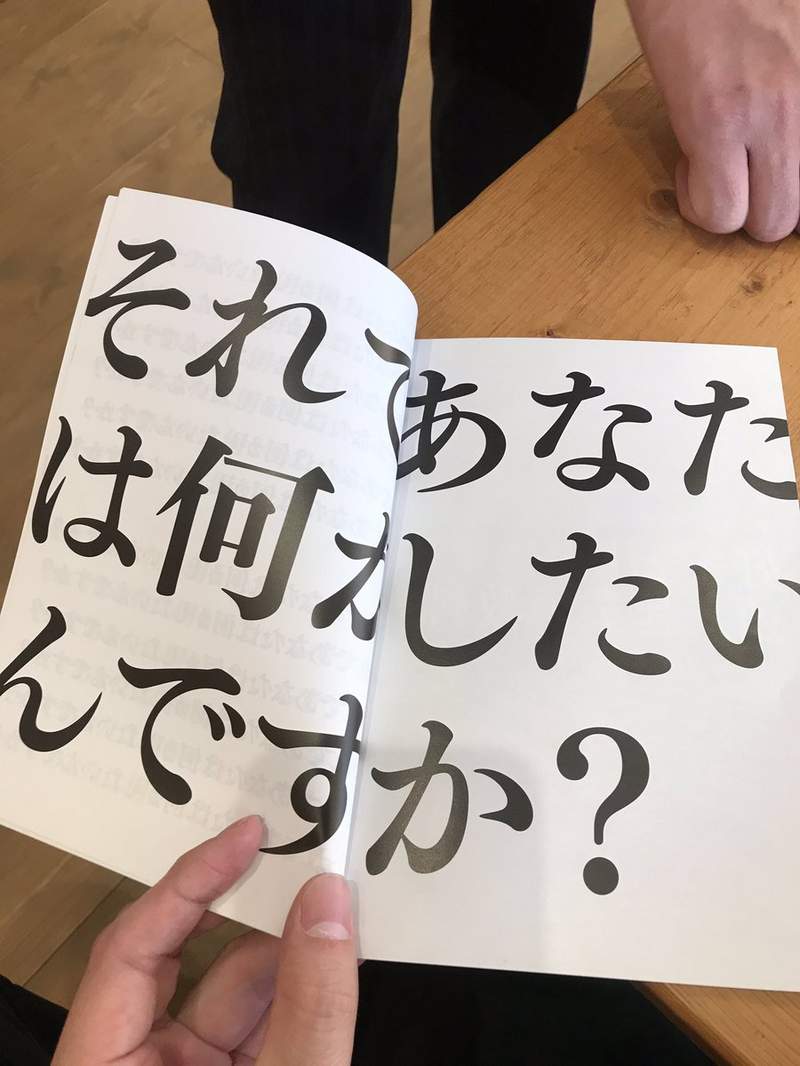 それであなた
は何がしたい
んですか？